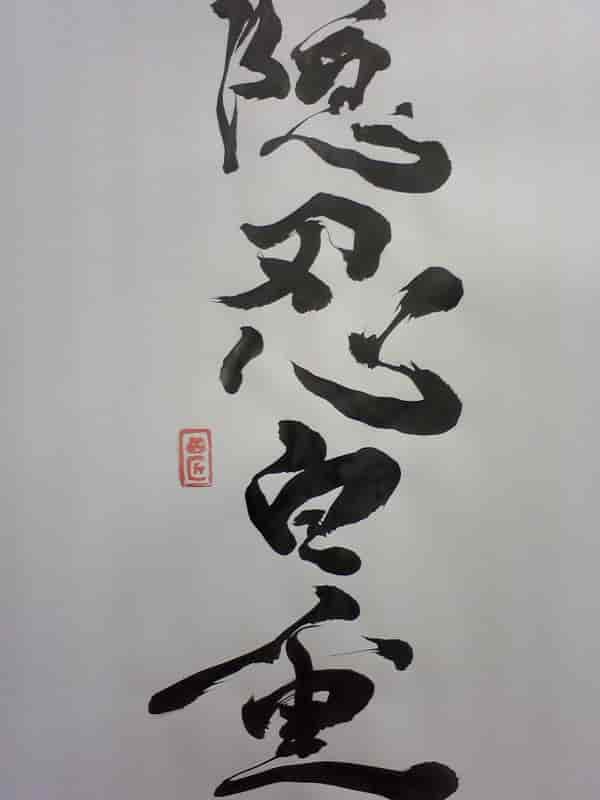 隠忍自重